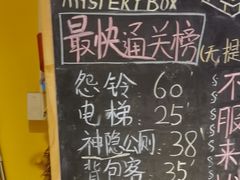 MYSTERY BOX
最快通关榜
(无提
怨铃 60'
电梯 25'
神隐公厕 38'
背包客 35'
不
服
来